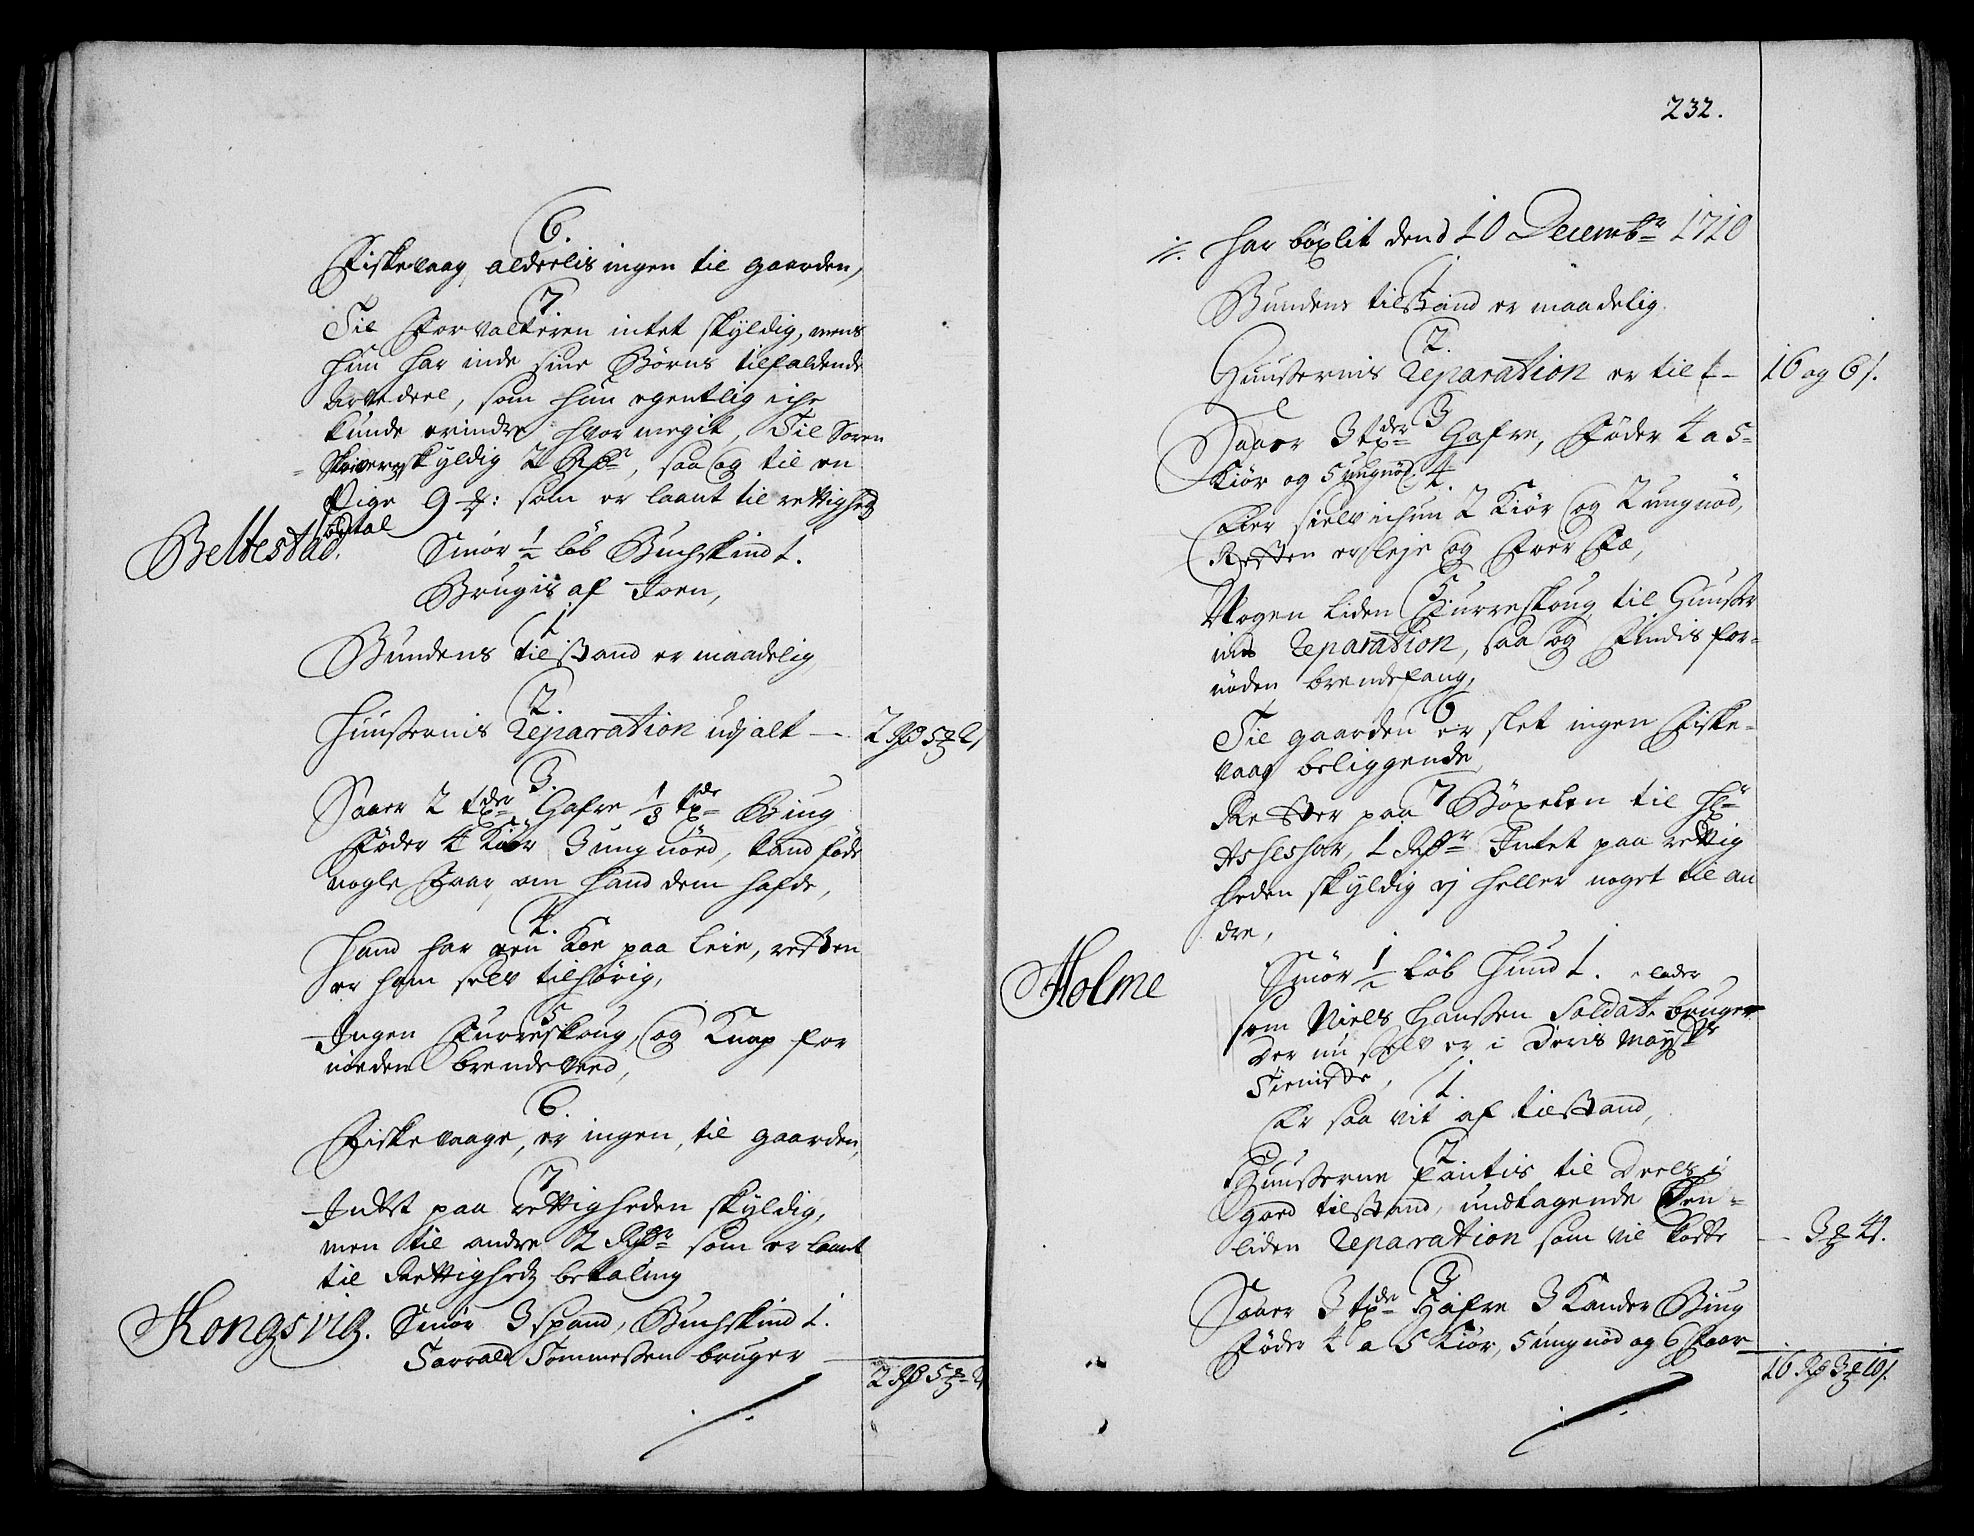 6.
Fiskevaag alderlis ingen til gaarden,
7
Til Forvalteren intet skyldig, mens
hun har inde sine Børns tilfaldende
Arvedeel, som hun egentlig iche
kunde erindre hvor megit, Til Soren
Skriver skyldig 2 Rdr, saa og til en
Pige 9 : som er laant til rettighed
Beltestad.
ødtal
Smør ½ løb Buchskind 1.
Brugis af Joen,
1
Bundens tilstand er maadelig
2.
Huusernis Reparation udj alt — 2 Rd 5 2
3.
Saaer 2 tder Hafre 1/3 tde Biug
Føder 4 Kiør 3 ungnød, kand føde
nogle Faar, om hand dem hafde,
4.
Hand har een Koe paa leie, resten
er ham selv tilhørig,
5
Ingen Furreskoug, og Knap for
nøden brendeveed,
6.
Fiskevaage, er ingen, til gaarden,
7
Intet paa rettigheden skyldig,
men til andre 2 Rdr som er laant
til Rettigheds betaling
Kongsvig. Smør 3 spand, Buchskind 1.
Tarrald Tommessen bruger
2 Rd 5 2
232.
har böxlit dend 10 Decembr 1710
1
Bundens tilstand er maadelig.
2.
Huusernis Reparation er til — 16 og 6
3
Saaer 3 tder Hafre, Føder 4 a 5
Kiør og 5 ungnød.
4.
Eier sielv ichun 2 Kiør og 2 ungnød,
Resten er leje og Foer Fæ,
5.
Nogen liden Furreskoug til Huuser
nis Reparation, saa og Findis for-
nøden brendefang,
6
Til gaarden er slet ingen Fiske-
vaag beliggende
7
Rester paa Böxelen til Hr
Assessor, 1 Rdr Intet paa rettig
heden skyldig ej heller noget til an
dre,
Holme
Smør ½ Løb Hund 1.
som Niels Hanssen Soldat bruger
Der nu selv er i Deris Mayts
Tieniste,
1.
Er saa vit af tilstand,
2.
Huuserne Fantis til Deels i
goed tilstand, undtagende Een
liden Reparation som vil koste — 3 4
3
Saaer 3 tder Hafre 3 Kander Biug
Føder 4 a 5 Kiør, 5 ungnød og 6 Faar
16 Rd 3 10